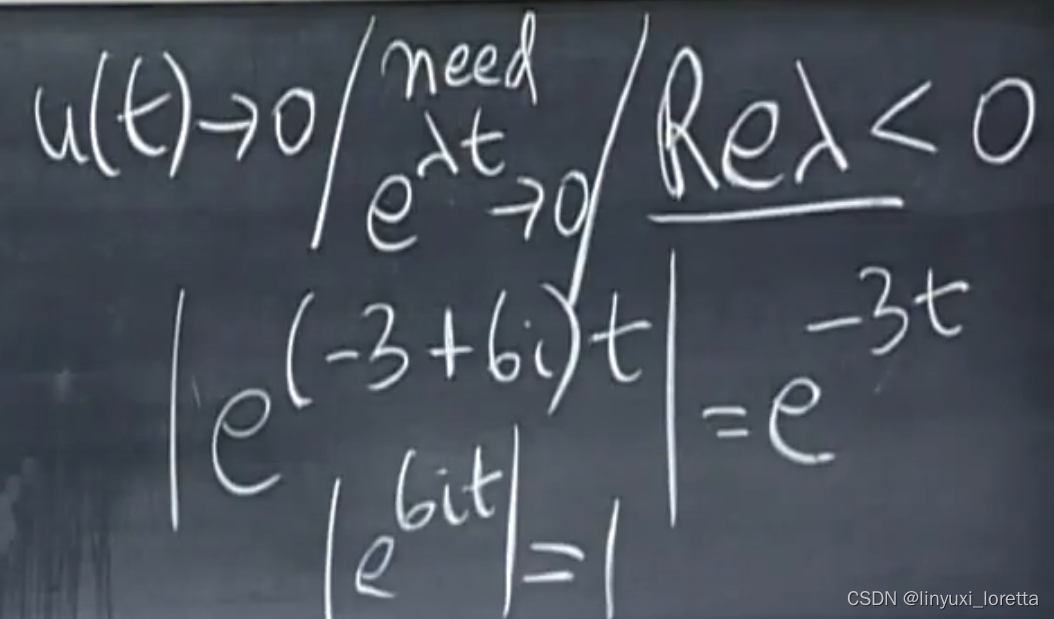 u(t)→0 / need e^{λt}→0 / Reλ < 0
|e^{(-3+6i)t}| = e^{-3t}
|e^{6it}| = 1
CSDN @linyuxi_loretta